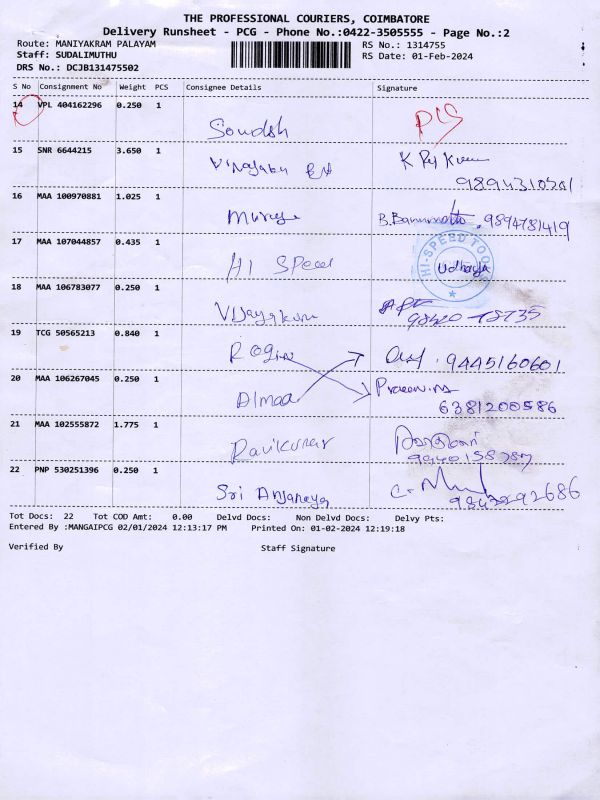 THE PROFESSIONAL COURIERS, COIMBATORE
Delivery Runsheet - PCG - Phone No.:0422-3505555 - Page No.:2
Route: MANIYAKRAM PALAYAM
Staff: SUDALIMUTHU
DRS No.: DCJB131475502
RS No.: 1314755
RS Date: 01-Feb-2024
S No Consignment No Weight PCS Consignee Details Signature
14 VPL 404162296 0.250 1
15 SNR 6644215 3.650 1
K
16 MAA 100970881 1.025 1
B. 9894781419
17 MAA 107044857 0.435 1
HI Speed
HI-SPEED
Udhaya
18 MAA 106783077 0.250 1
Vijayakum
19 TCG 50565213 0.840 1
Rogin
9445160601
20 MAA 106267045 0.250 1
Almaa
6381200586
21 MAA 102555872 1.775 1
Ravikumar
22 PNP 530251396 0.250 1
Sri Anjaneya
Tot Docs: 22 Tot COD Amt: 0.00 Delvd Docs: Non Delvd Docs: Delvy Pts:
Entered By :MANGAIPCG 02/01/2024 12:13:17 PM Printed On: 01-02-2024 12:19:18
Verified By Staff Signature